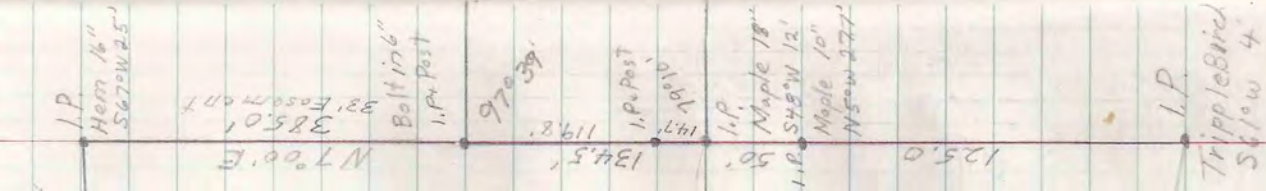 I.P.
Hem 16"
S67°W 25'
33' Easement
385.0'
N 7°00' E
Bolt in 6"
I.P. & Post
97° 39'
119.8'
134.5'
I.P. & Post
14.7'
79°10'
I.P.
Maple 18"
S48°W 12'
50'
I.P.
Maple 10"
N5°W 27.7'
125.0
I.P.
Tripple Birch
S61°W 4